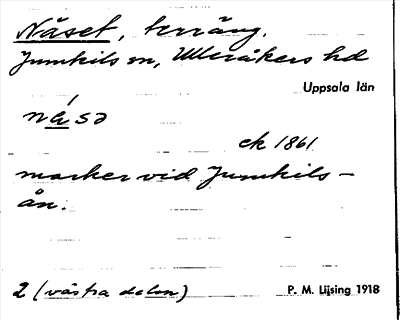 Näset, terräng.
Jumkils sn, Ulleråkers hd
Uppsala län
nä́sə
ek 1861
marker vid Jumkils-
ån.
2 (västra delen)
P. M. Lijsing 1918